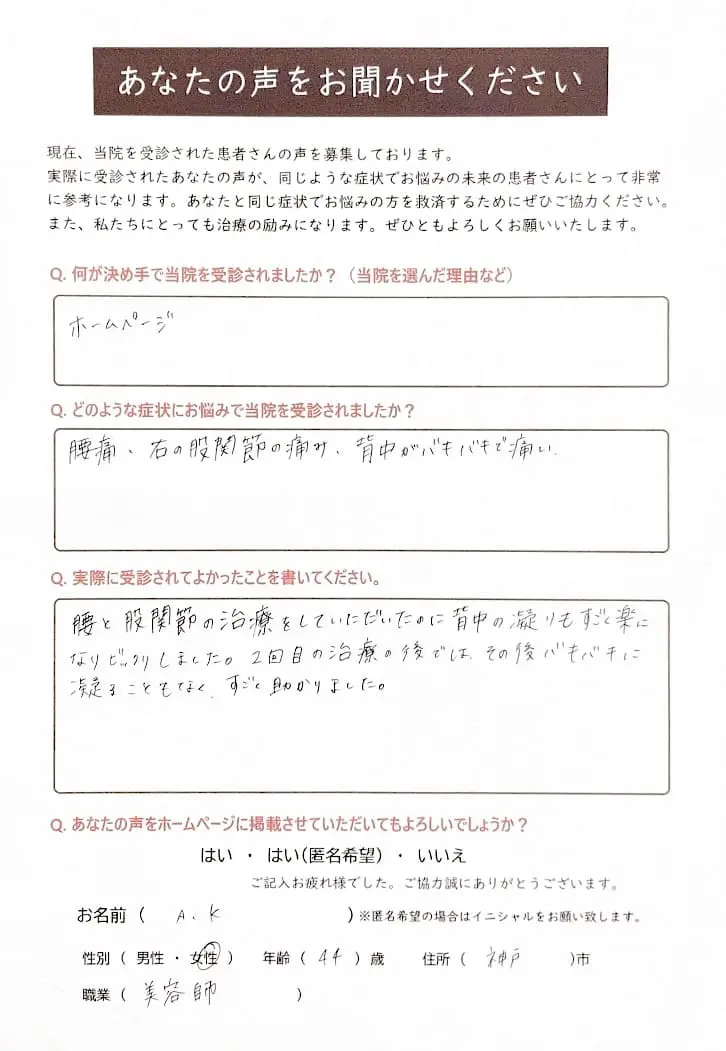 あなたの声をお聞かせください
現在、当院を受診された患者さんの声を募集しております。
実際に受診されたあなたの声が、同じような症状でお悩みの未来の患者さんにとって非常
に参考になります。あなたと同じ症状でお悩みの方を救済するためにぜひご協力ください。
また、私たちにとっても治療の励みになります。ぜひともよろしくお願いいたします。
Q. 何が決め手で当院を受診されましたか？（当院を選んだ理由など）
ホームページ
Q. どのような症状にお悩みで当院を受診されましたか？
腰痛、右の股関節の痛み、背中がバキバキで痛い.
Q. 実際に受診されてよかったことを書いてください。
腰と股関節の治療をしていただいたのに背中の凝りもすごく楽に
なりビックリしました。2回目の治療の後では、その後バキバキに
凝ることもなく、すごく助かりました。
Q. あなたの声をホームページに掲載させていただいてもよろしいでしょうか？
はい ・ はい(匿名希望) ・ いいえ
ご記入お疲れ様でした。ご協力誠にありがとうございます。
お名前（ A.K ）※匿名希望の場合はイニシャルをお願い致します。
性別（ 男性 ・ 女性 ） 年齢（ 44 ）歳 住所（ 神戸 ）市
職業（ 美容師 ）